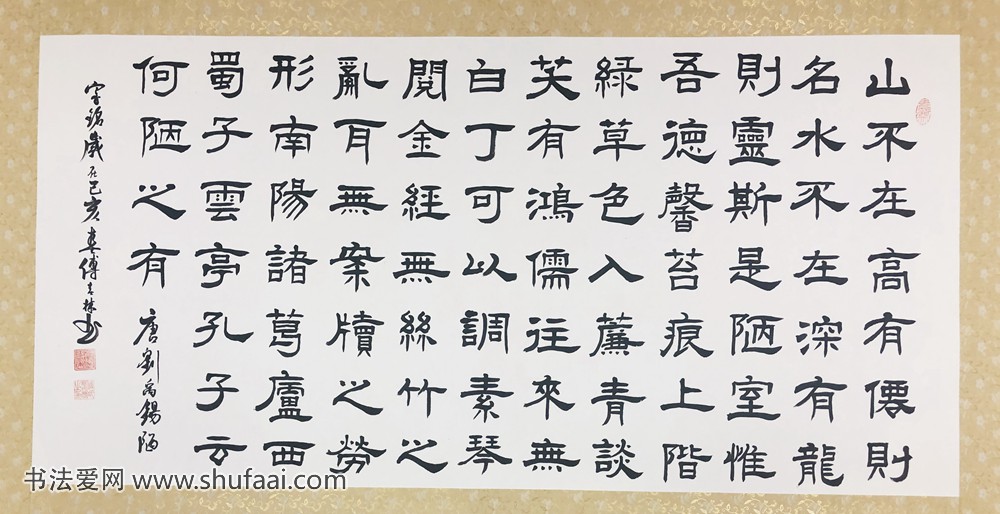 山不在高有僊則
名水不在深有龍
則靈斯是陋室惟
吾德馨苔痕上階
綠草色入簾青談
笑有鴻儒往來無
白丁可以調素琴
閱金經無絲竹之
亂耳無案牘之勞
形南陽諸葛廬西
蜀子雲亭孔子云
何陋之有 唐劉禹錫陋
室銘歲在己亥春傅吉林书
书法爱网 www.shufaai.com